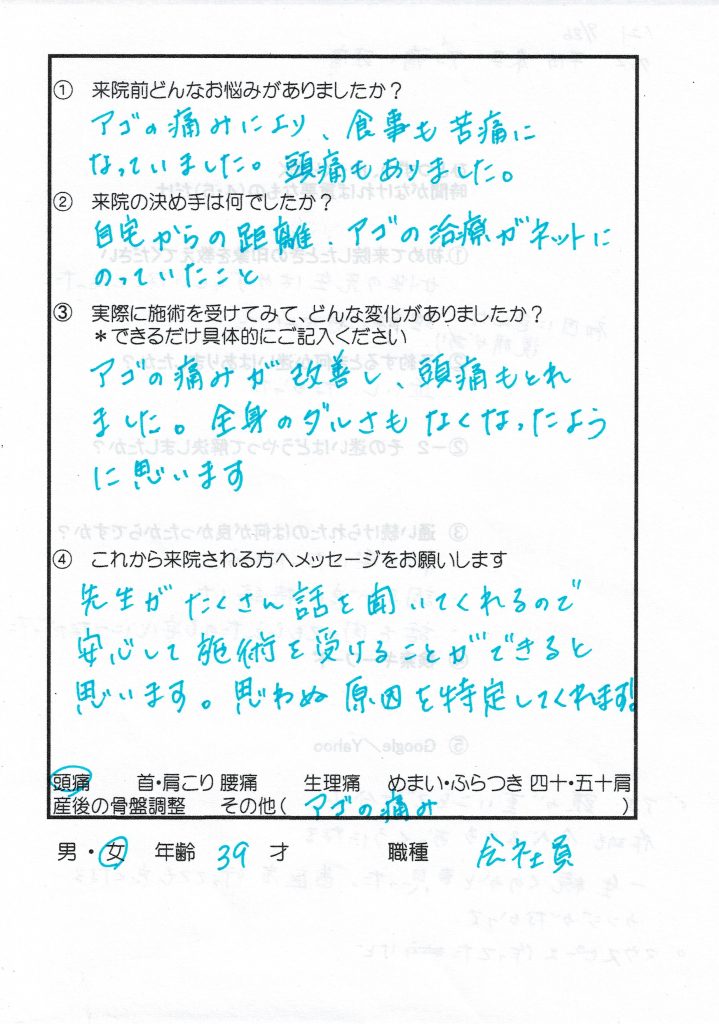 ① 来院前どんなお悩みがありましたか？
アゴの痛みにより、食事も苦痛に
なっていました。頭痛もありました。
② 来院の決め手は何でしたか？
自宅からの距離、アゴの治療がネットに
のっていたこと
③ 実際に施術を受けてみて、どんな変化がありましたか？
＊できるだけ具体的にご記入ください
アゴの痛みが改善し、頭痛もとれ
ました。全身のダルさもなくなったよう
に思います
④ これから来院される方へメッセージをお願いします
先生がたくさん話を聞いてくれるので
安心して施術を受けることができると
思います。思わぬ原因を特定してくれます!
頭痛 首・肩こり 腰痛 生理痛 めまい・ふらつき 四十・五十肩
産後の骨盤調整 その他（ アゴの痛み ）
男・女 年齢 39 才 職種 会社員